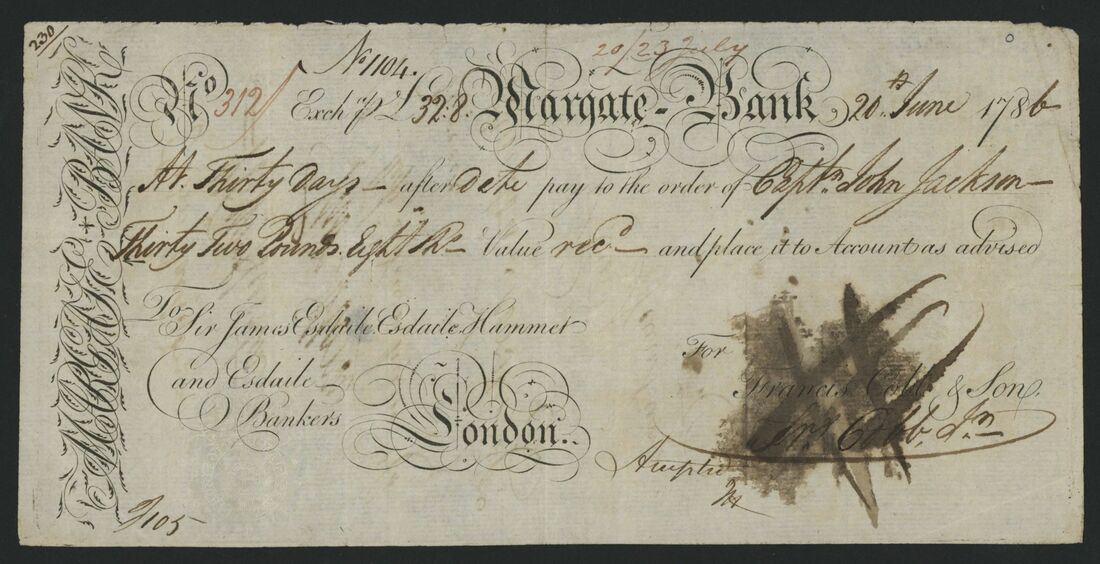 230
20/23 July
No 1104.
No 312 Exch for £32:8. Margate-Bank, 20th June 1786
At Thirty Days after Date pay to the order of Captn John Jackson
Thirty Two Pounds Eight Value recd and place it to Account as advised
To Sir James Esdaile, Esdaile, Hammet
and Esdaile
Bankers
London.
For
Francis Cobb & Son,
Frs Cobb Jn
MARGATE BANK
105